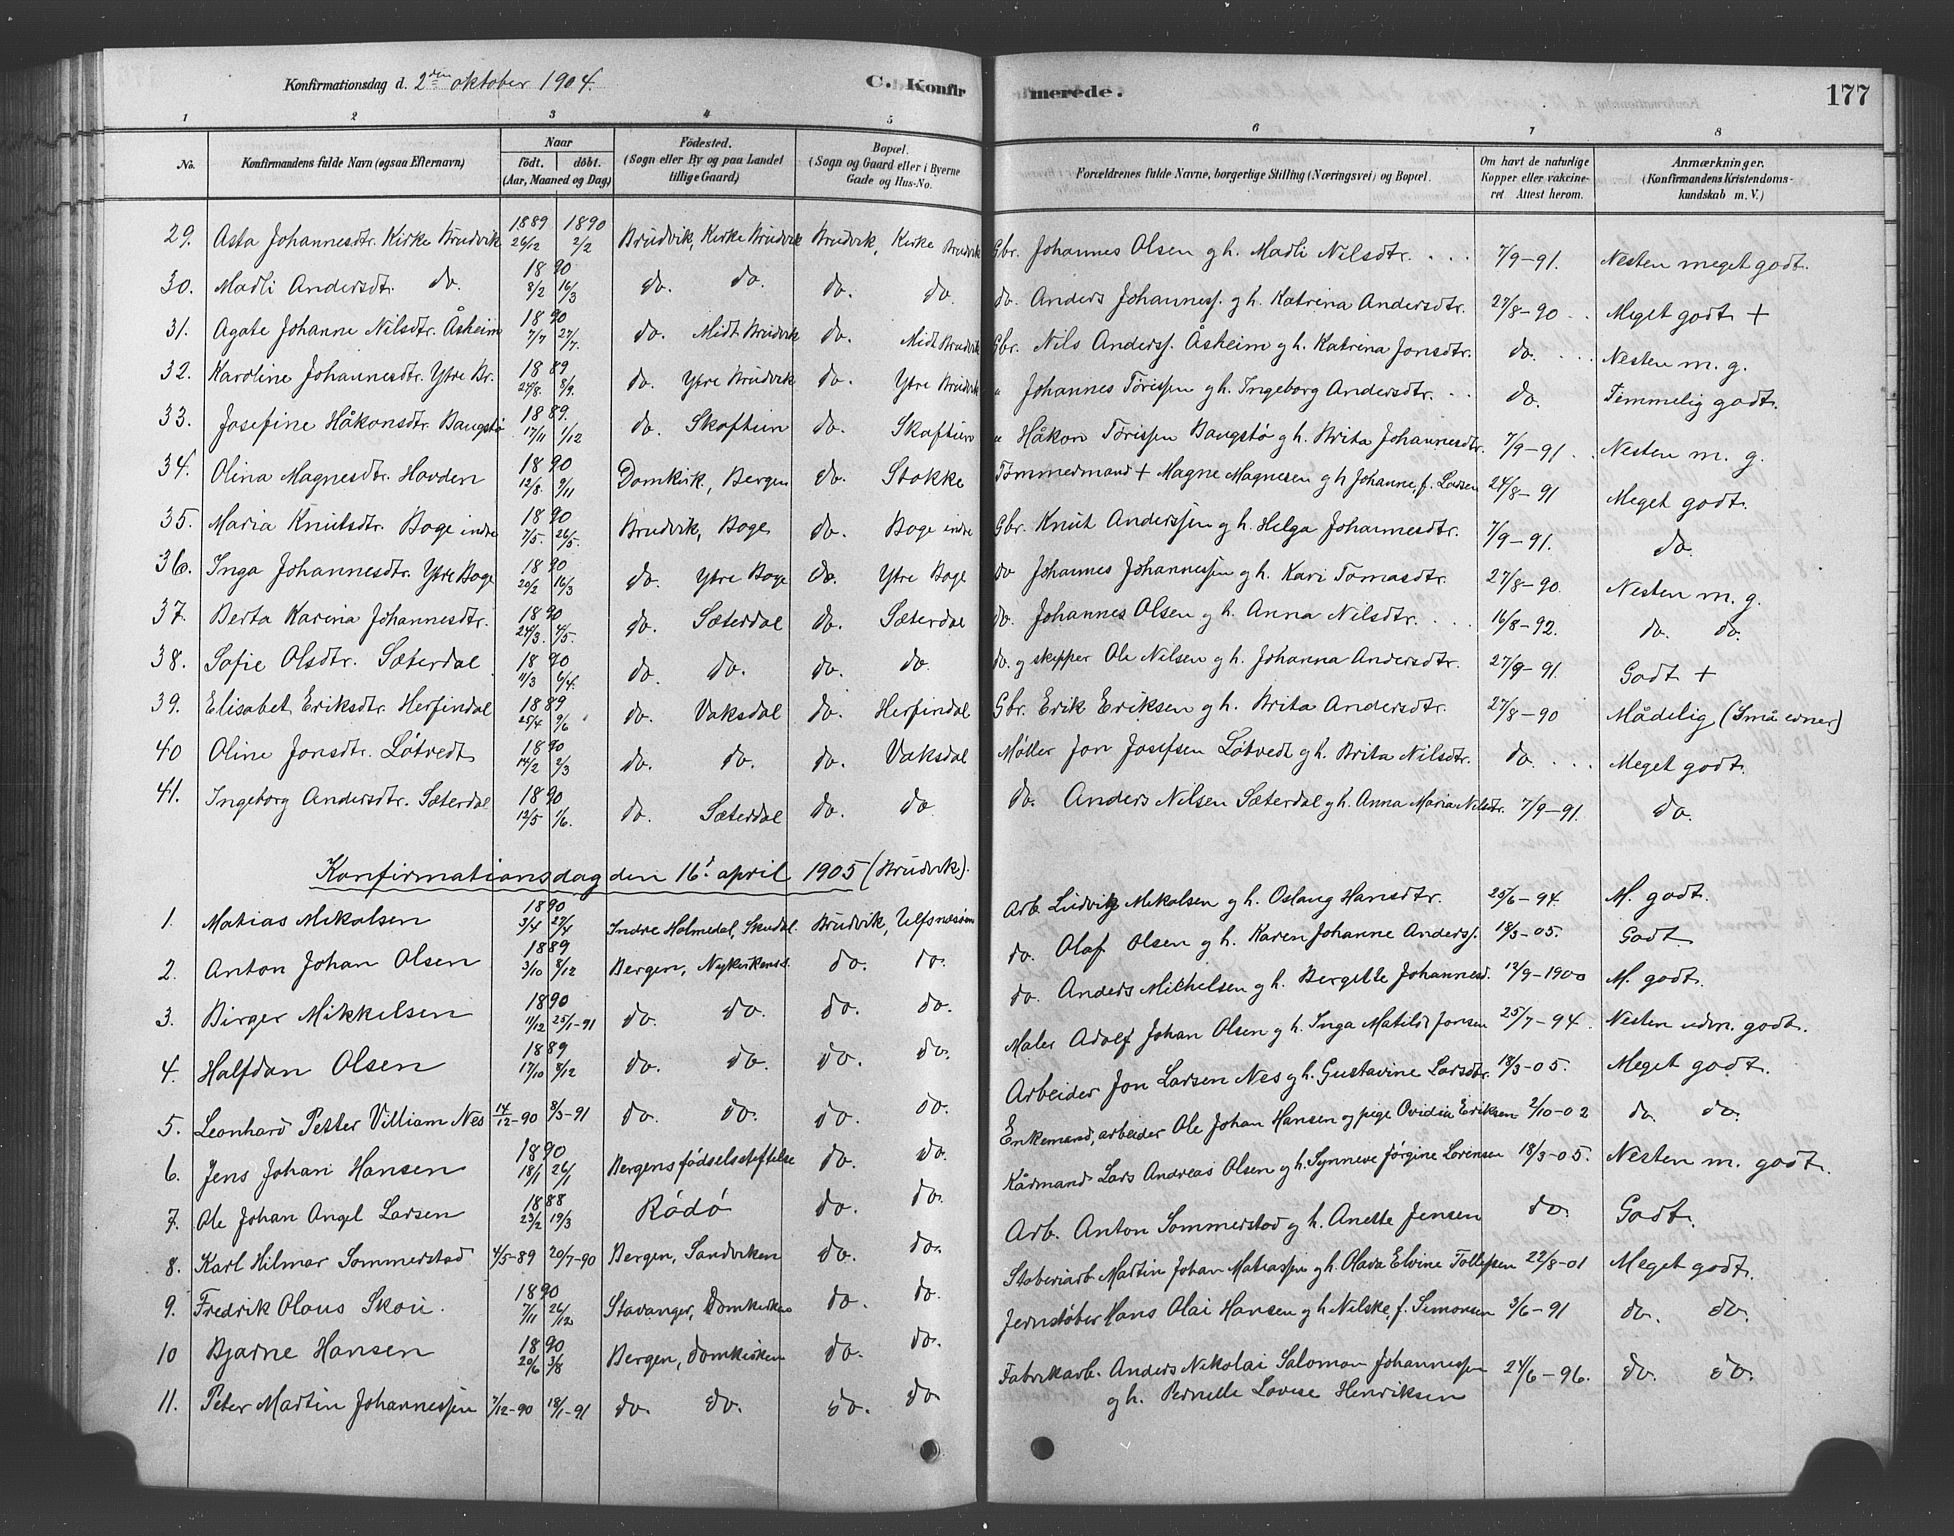 Konfirmationsdag d. 2den oktober 1904. C. Konfirmerede. 177
1 2 3 4 5 6 7 8
No. Konfirmandens fulde Navn (ogsaa Efternavn) Naar født. døbt. (Aar, Maaned og Dag) Fødested. (Sogn eller By og paa Landet tillige Gaard) Bopæl. (Sogn og Gaard eller i Byerne Gade og Hus-No. Forældrenes fulde Navne, borgerlige Stilling (Næringsvei) og Bopæl. Om havt de naturlige Kopper eller vakcineret Attest herom. Anmærkninger. (Konfirmandens Kristendomskundskab m. V.)
29. Asta Johannesdtr. Kirke Brudvik 1889 26/12 1890 2/2 Brudvik, Kirke Brudvik Brudvik, Kirke Brudvik Gbr. Johannes Olsen g h. Madli Nilsdtr. . . . 7/9-91. Nesten meget godt.
30. Madli Andersdtr. do. 1890 8/2 16/3 do. do. do. do. do. Anders Johanness. g h. Katrina Andersdtr. 27/8-90 . . Meget godt +
31. Agate Johanne Nilsdtr. Åsheim 1890 7/7 27/7. do. Midt Brudvik do. Midt Brudvik Gbr. Nils Anderss. Åsheim g h. Katrina Jonsdtr. do. . . . Nesten m. g.
32. Karoline Johannesdtr. Ytre Br. 1889 24/8. 8/9. do. Ytre Brudvik do. Ytre Brudvik " Johannes Törissen g h. Ingeborg Andersdtr. . . do. Temmelig godt.
33. Josefine Håkonsdtr. Baugstø 1889. 17/11 1/12 do. Skaftun do. Skaftun " Håkon Törissen Baugstø g h. Brita Johannesdtr. 7/9-91. . Nesten m. g.
34. Olina Magnesdtr. Hovden 1890 12/8. 9/11 Domkirk., Bergen do. Stokke Tømmermand + Magne Magnesen g h Johanne, f. Larsen 24/8-91 Meget godt.
35. Maria Knutsdtr. Boge indre 1890 7/5. 26/5. Brudvik, Boge do. Boge indre Gbr. Knut Anderssen g h. Helga Johannesdtr. 7/9-91. do.
36. Inga Johannesdtr. Ytre Boge 1890 20/2 16/3 do. Ytre Boge do. Ytre Boge do Johannes Johannessen g h. Kari Tomasdtr. 27/8-90. Nesten m. g.
37. Berta Karina Johannesdtr. 1890 24/3. 4/5. do. Sæterdal do. Sæterdal do. Johannes Olsen g h. Anna Nilsdtr. . . . 16/8-92. do. do.
38. Sofie Olsdtr. Sæterdal 1890 11/3 6/4. do. do. do. do. do. g skipper Ole Nilsen g h. Johanna Andersdtr. 27/9-91. Godt +
39. Elisabet Eriksdtr. Herfindal 1889 25/4 9/6 do. Vaksdal do. Herfindal Gbr. Erik Eriksen g h. Brita Andersdtr. 27/8-90 Mådelig (Små evner)
40 Oline Jonsdtr. Løtvedt 1890 14/2 2/3 do. do. do. Vaksdal Møller Jon Josefsen Løtvedt g h. Brita Nilsdtr. do. . . . Meget godt.
41. Ingeborg Andersdtr. Sæterdal 1890 12/5 1/6. do. Sæterdal do. do do. Anders Nilsen Sæterdal g h. Anna Maria Nilsdtr. 7/9-91. do.
Konfirmationsdag den 16' april 1905 (Brudvik).
1. Matias Mikalsen 1890 3/4 27/4 Indre Holmedal, Skudal. Brudvik, Ulfsnesøen Arb. Ludvig Mikalsen g h. Oslaug Hansdtr. 25/6-94. M. godt.
2. Anton Johan Olsen 1889 3/10 8/12 Bergen, Nykirkens s. do. do. do. Olaf Olsen g h. Karen Johanne Anderss. 18/3-05. Godt
3. Birger Mikkelsen 1890 11/12 25/1-91 do. do. do. do. do. Anders Michelsen g h. Bergitte Johannesd. 12/9-1900 M. godt.
4. Halfdan Olsen 1889 17/10 8/12 do. do. do. do. Maler Adolf Johan Olsen g h. Inga Matilde Jonsen 25/7-94. Nesten udm. godt.
5. Leonhard Petter Villiam Nes 14/12-90 8/3-91 do. do. do. do. Arbeider Jon Larsen Nes g h. Gustavine Larsdtr. 18/3-05. Meget godt.
6. Jens Johan Hansen 1890 18/1 26/1 Bergens fødselsstiftelse do. do. Enkemand, arbeider Ole Johan Hansen og pige Ovidia Eriksen 2/10-02 do. do.
7. Ole Johan Angel Larsen 1888 23/2 19/3 Rödö do. do. Kårmand Lars Andreas Olsen g h. Synneve Jørgine Lorensen 18/3-05. Nesten m. godt.
8. Karl Hilmar Sommerstad 4/5-89 20/7-90 Bergen, Sandviken do. do. Arb. Anton Sommerstad g h. Anette Jensen do. Godt.
9. Fredrik Olaus Skou. 1890 7/11 26/12 Stavanger, Domkirken do. do. Støberiarb. Martin Johan Matiassen g h. Olava Elvine Tollefsen 22/8-01 Meget godt.
10 Bjarne Hansen 1890 20/6 3/8 Bergen, domkirken do. do. Jernstøber Hans Olai Hansen g h Nilske, f. Simonsen 3/6-91 do. do.
11. Peter Martin Johannessen 7/12-90 18/1-91 do. do. do. do Fabrikarb. Anders Nikolai Salomon Johannessen 24/6-96. do. do.
g h. Pernille Lovise Henriksen